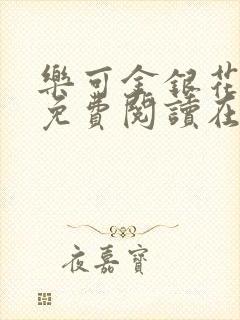 樂可金銀花
免費閱讀在
夜嘉寶